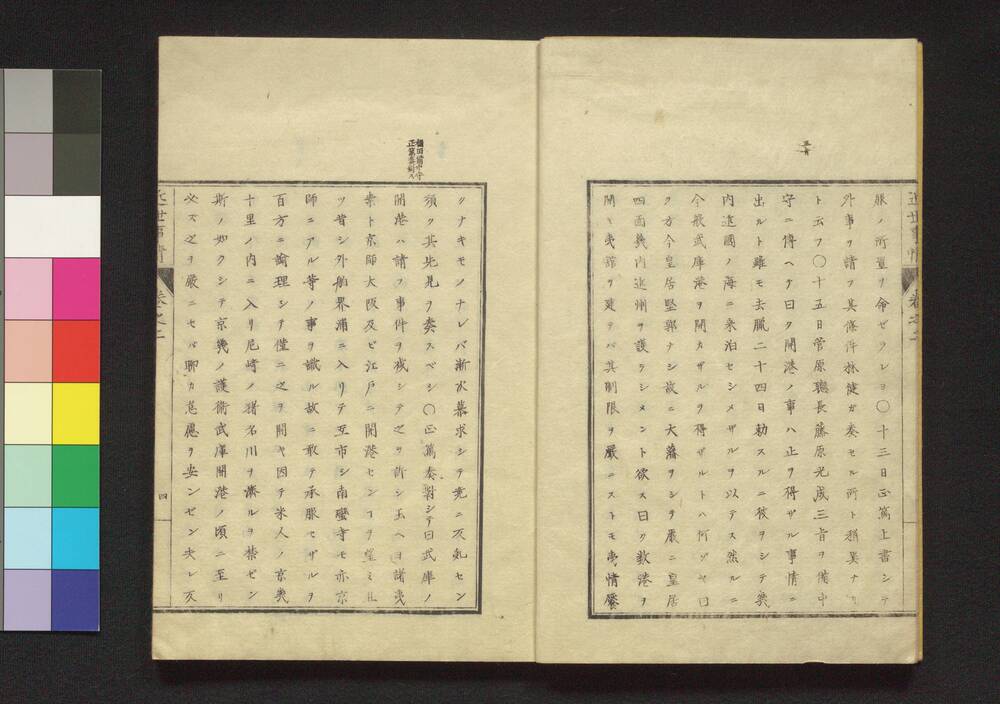 三旨
服ノ所置ヲ命ゼラレヨ〇十三日正篤上書シテ
外事ヲ請フ其條件林健ガ奏セル所ト稍異ナリ
ト云フ〇十五日菅原聰長藤原光成三旨ヲ備中
守ニ傳ヘテ曰ク開港ノ事ハ止ヲ得ザル事情ニ
出ルト雖モ去臘二十四日勅スルニ彼ヲシテ畿
内近國ノ海ニ来泊セシメザルヲ以テス然ルニ
今般武庫港ヲ開カザルヲ得ザルトハ何ゾヤ曰
ク方今皇居堅郭ナシ故ニ大藩ヲシテ嚴ニ皇居
四面畿内近州ヲ護ラシメント欲ス曰ク数港ヲ
開キ夷館ヲ建テバ其制限ヲ嚴ニストモ夷情饜
近世事情 巻之二
備中守
正篤奏對ス
クナキモノナレバ漸次募求シテ竟ニ反乱セン
須ク其先見ヲ奏スベシ〇正篤奏對シテ曰武庫ノ
開港ハ請フ事件ヲ減シテ之ヲ許シ玉ヘヨ諸夷
素ト京師大阪及ビ江戸ニ開港センコヲ望ミ且
ツ昔シ外舶界浦ニ入リテ互市シ南蠻寺モ亦京
師ニアル等ノ事ヲ識ル故ニ敢テ承服セザルヲ
百方ニ論理シテ僅ニ之ヲ開ヤ因テ米人ノ京畿
十里ノ内ニ入リ尼﨑ノ猪名川ヲ濟ルヲ禁ゼン
斯ノ如クシテ京畿ノ護衛武庫開港ノ頃ニ至リ
必ズ之ヲ嚴ニセバ聊カ
慮ヲ安ンゼン夫レ反
近世事情 巻之二
四